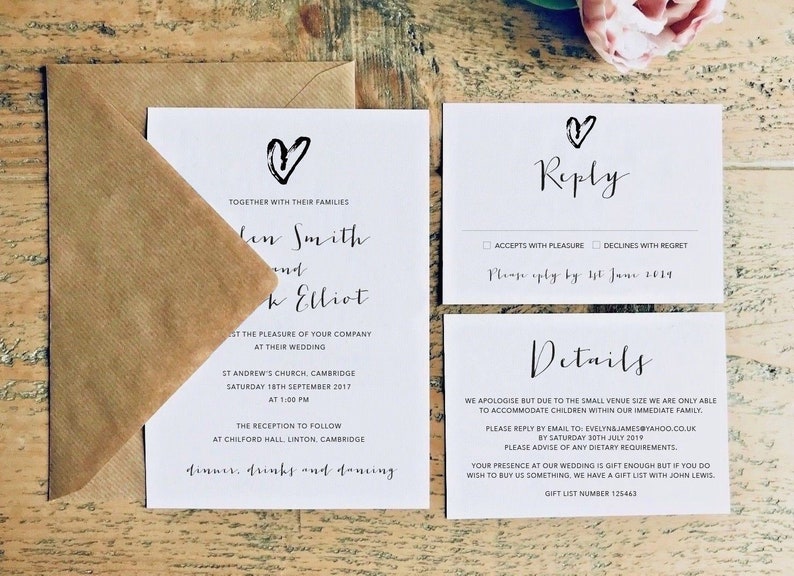 TOGETHER WITH THEIR FAMILIES
Smith
and
Elliot
THE PLEASURE OF YOUR COMPANY
AT THEIR WEDDING
ST ANDREW'S CHURCH, CAMBRIDGE
SATURDAY 18TH SEPTEMBER 2017
AT 1:00 PM
THE RECEPTION TO FOLLOW
AT CHILFORD HALL, LINTON, CAMBRIDGE
dinner, drinks and dancing
Reply
ACCEPTS WITH PLEASURE DECLINES WITH REGRET
Please eply by 1st June 2019
Details
WE APOLOGISE BUT DUE TO THE SMALL VENUE SIZE WE ARE ONLY ABLE
TO ACCOMMODATE CHILDREN WITHIN OUR IMMEDIATE FAMILY.
PLEASE REPLY BY EMAIL TO: EVELYN&JAMES@YAHOO.CO.UK
BY SATURDAY 30TH JULY 2019
PLEASE ADVISE OF ANY DIETARY REQUIREMENTS.
YOUR PRESENCE AT OUR WEDDING IS GIFT ENOUGH BUT IF YOU DO
WISH TO BUY US SOMETHING, WE HAVE A GIFT LIST WITH JOHN LEWIS.
GIFT LIST NUMBER 125463